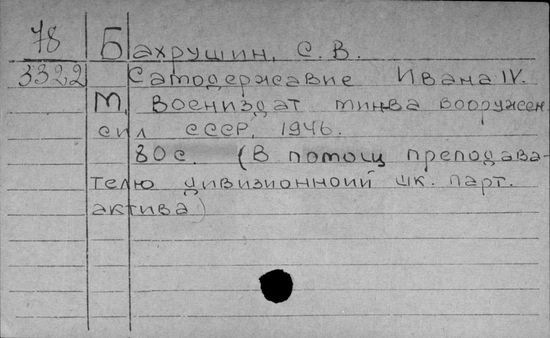 78
Бахрушин, С. В.
3322
Самодержавие Ивана IV.
М. Воениздат мин-ва вооружен
сил СССР, 1946.
80 с. (В помощ преподава-
телю дивизионноий шк. парт.
актива)